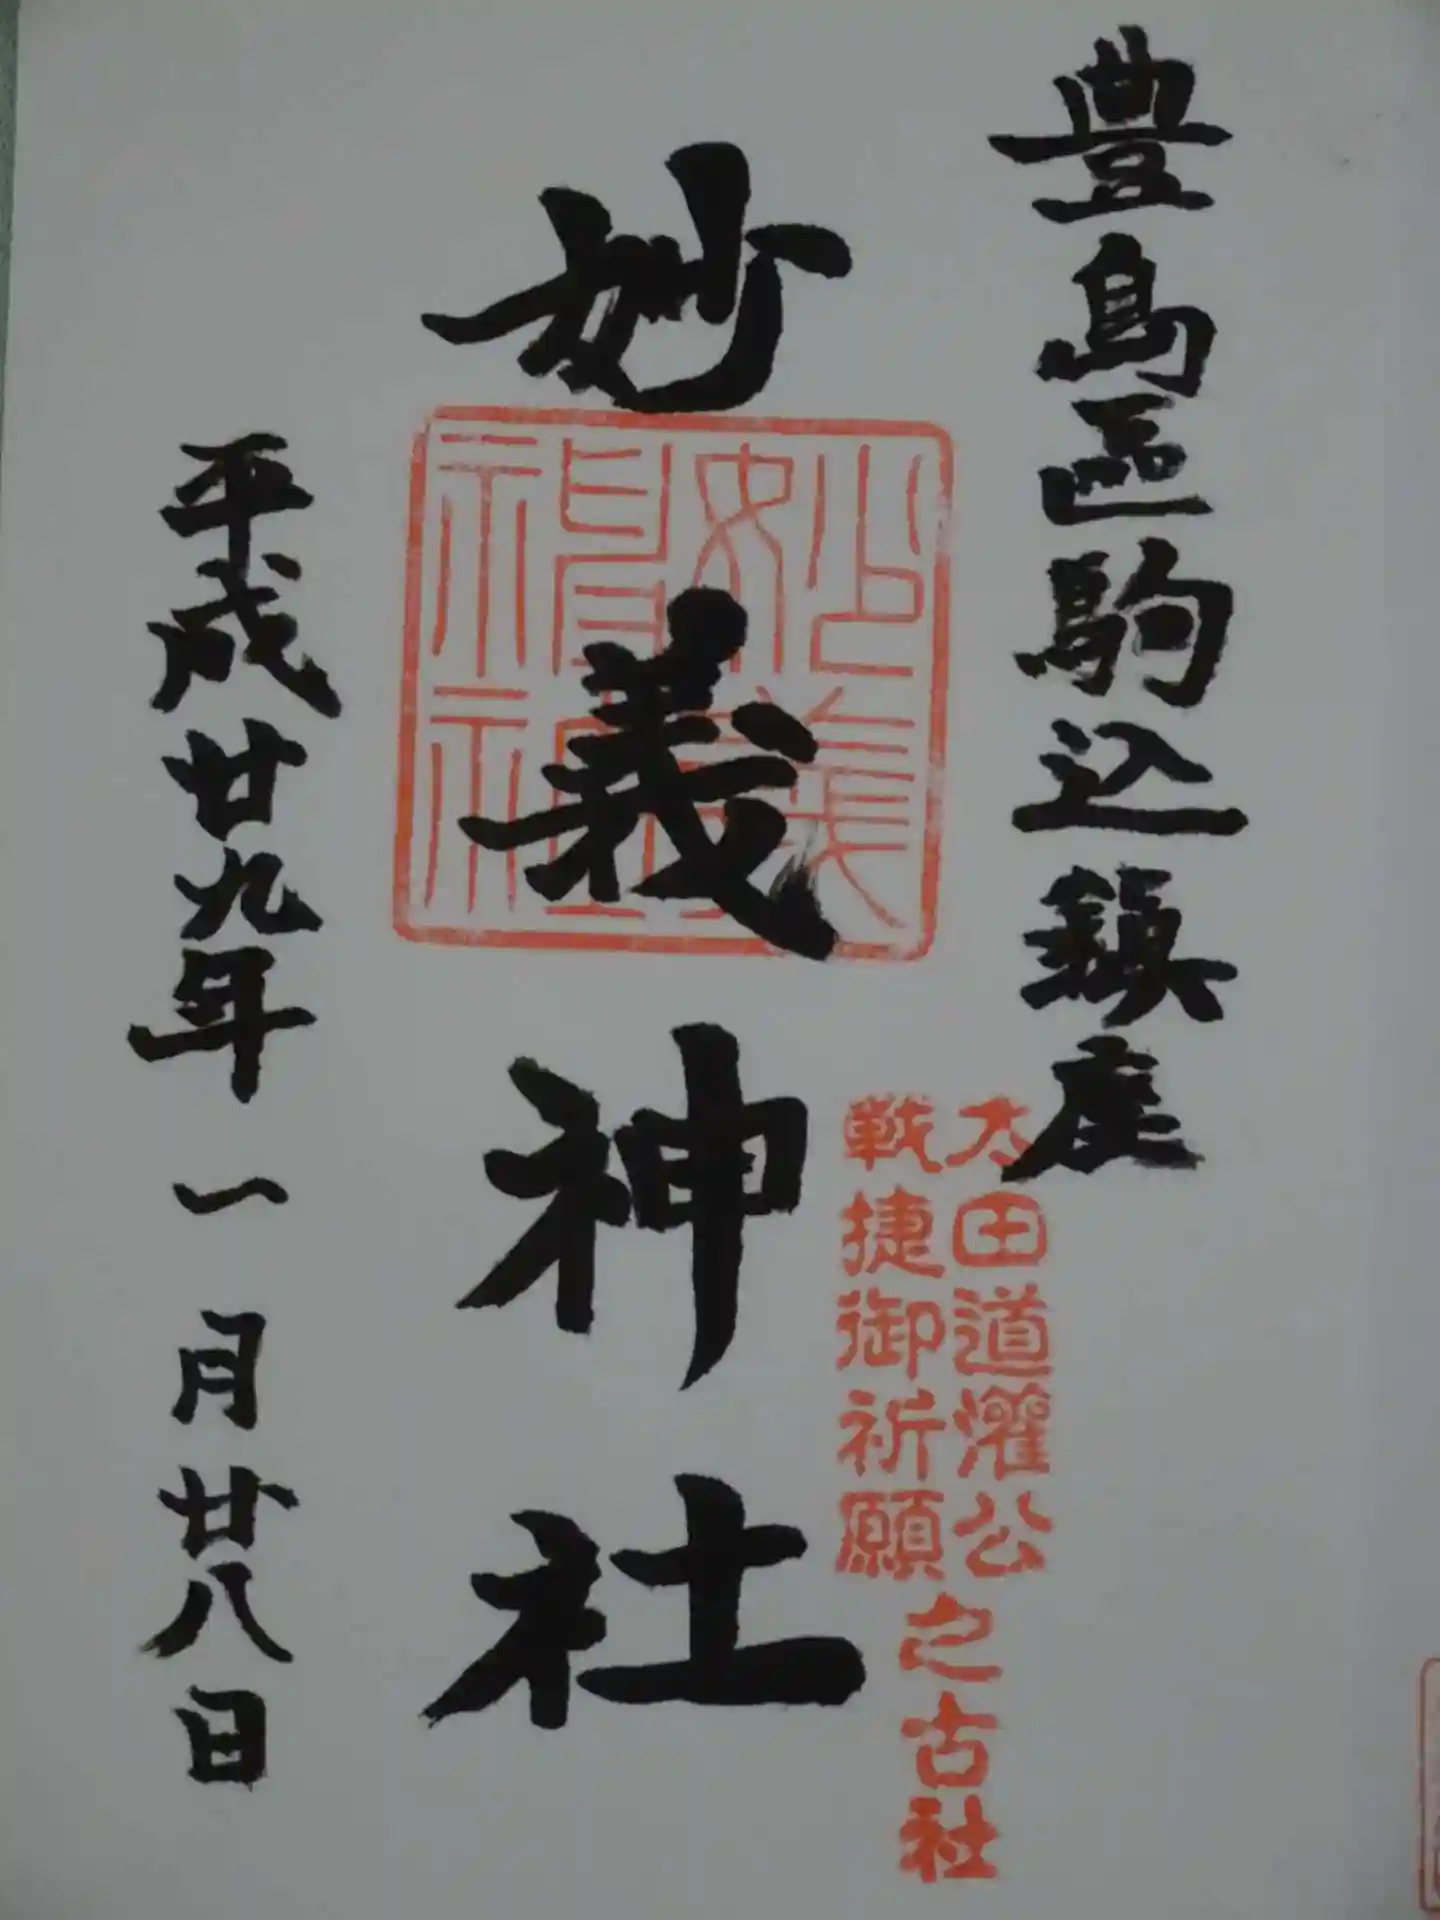 豊島區駒込鎮座
太田道灌公
戦捷御祈願
之古社
妙義神社
妙義神社
平成廿九年一月廿八日